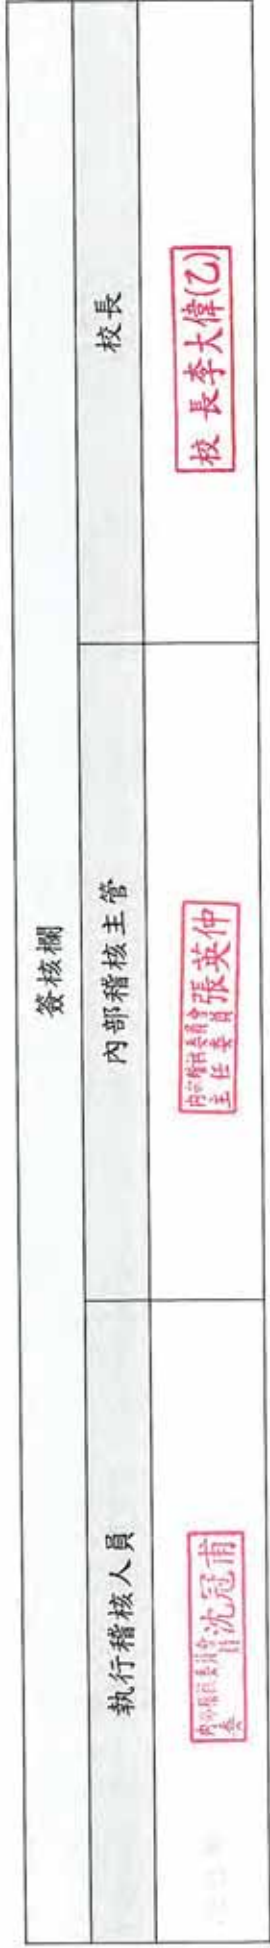 簽核欄
執行稽核人員
內部稽核主管
校長
內部稽核委員會
委員
沈冠甫
內部稽核委員會
主任委員
張英仲
校長李大偉(乙)